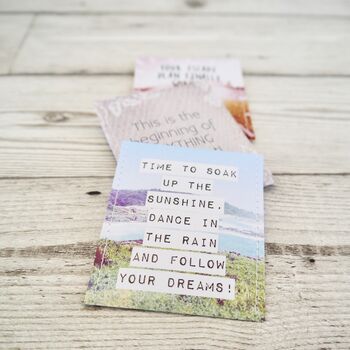 YOUR ESCAPE
PLAN
This is the
beginning of
TIME TO SOAK
UP THE
SUNSHINE,
DANCE IN
THE RAIN
AND FOLLOW
YOUR DREAMS!